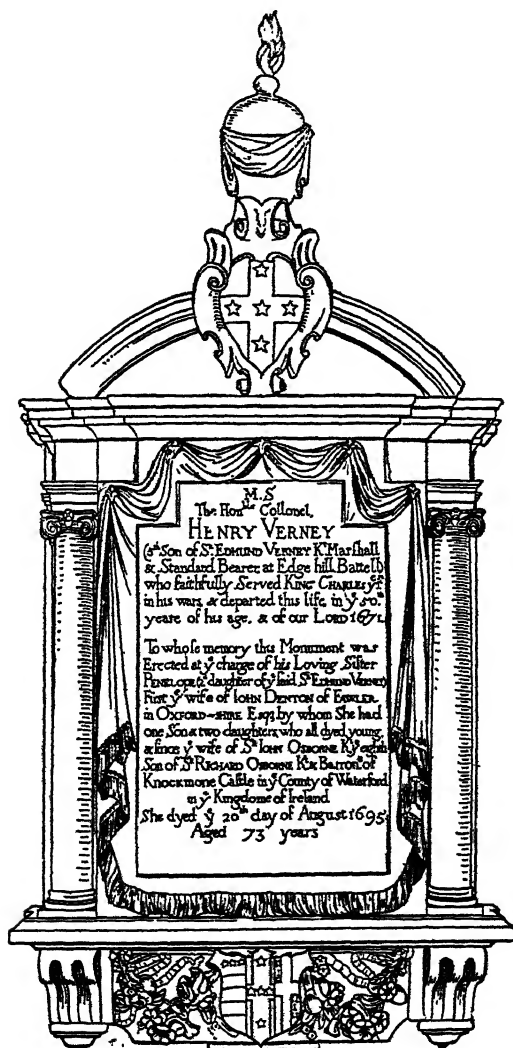 M.S
The Honble Collonel,
HENRY VERNEY
Son of Sr EDMUND VERNEY Kt Marshall
& Standard Bearer at Edge hill Battell)
who faithfully Served KING CHARLES ye
in his wars & departed this life in ye 50th
yeare of his age, & of our LORD 1671
To whose memory this Monument was
Erected at ye charge of his Loving Sister
PENELOPE daughter of ye said Sr EDMUND VERNEY)
First ye wife of IOHN DENTON of
in OXFORD-SHIRE Esqr, by whom She had
one Son & two daughters, who all dyed young,
& since ye wife of Sr IOHN OSBORNE Kt ye
Son of Sr RICHARD OSBORNE Kt & of
KNOCKMONE Castle in ye County of Waterford
in ye Kingdome of Ireland
She dyed ye 20th day of August 1695
Aged 73 years